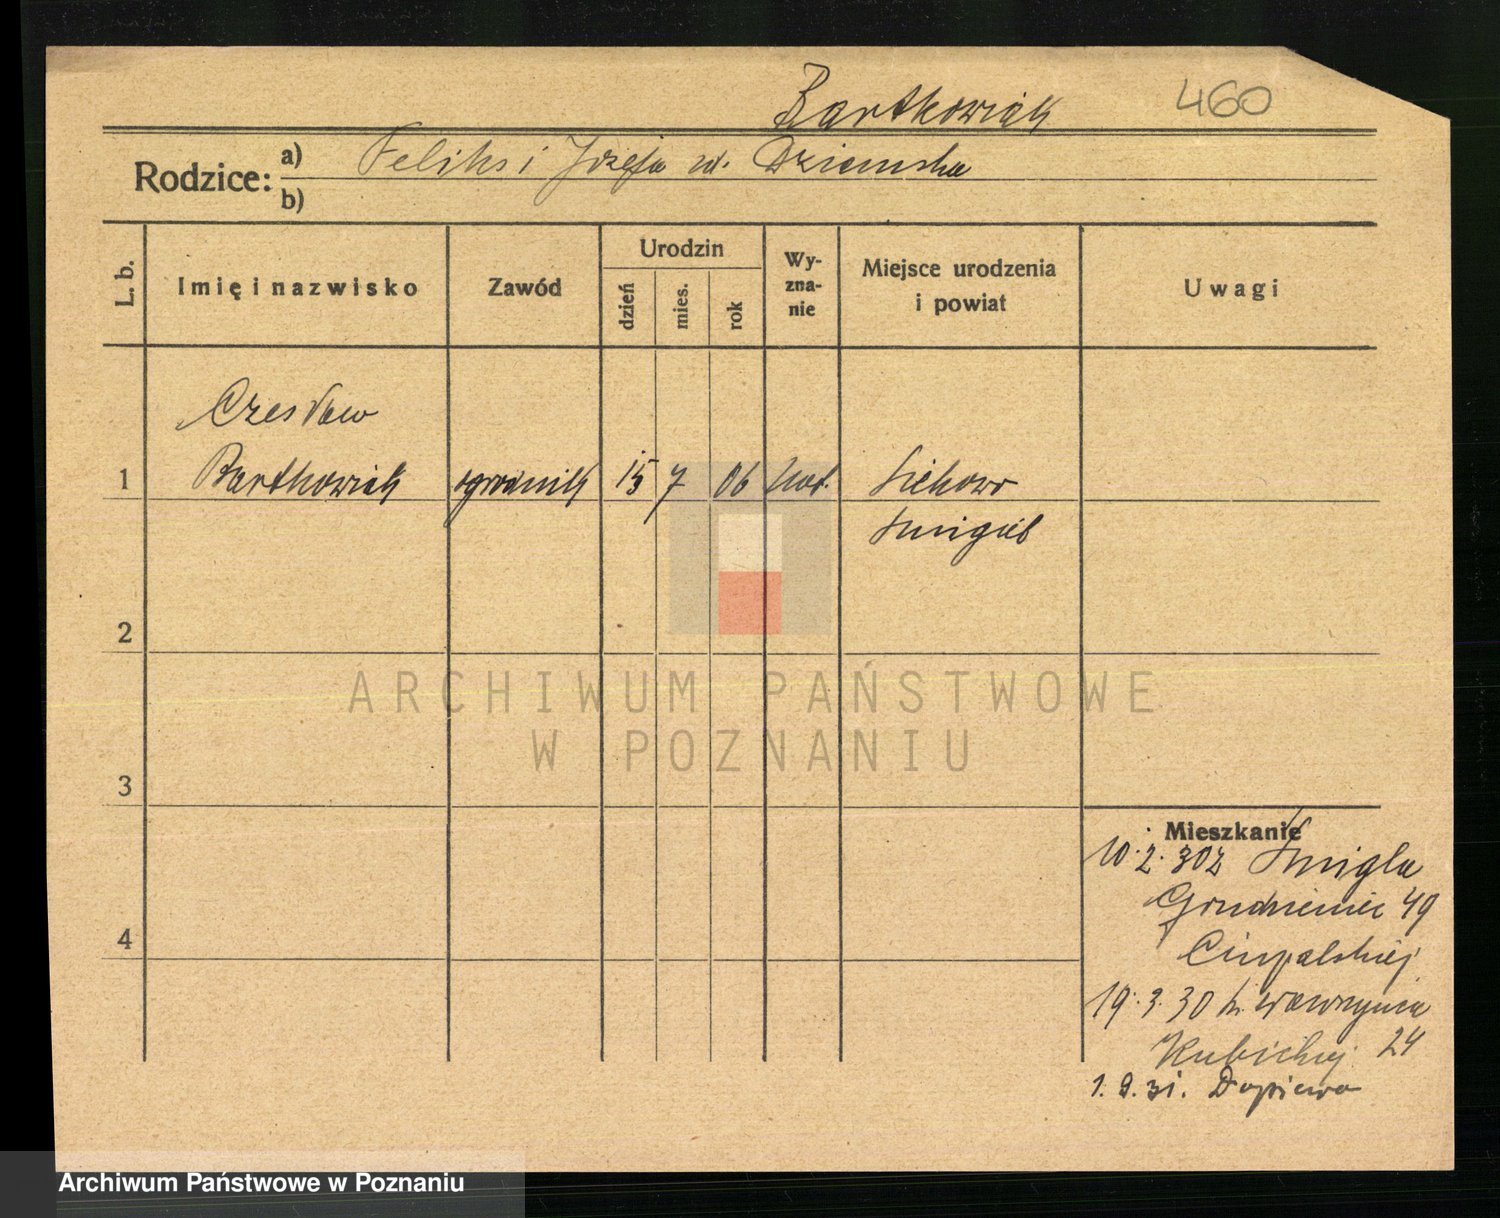 Bartkowiak 460
Rodzice: a) Feliks i Józefa ur. Dziemska
b)
L. b. Imię i nazwisko Zawód Urodzin dzień mies. rok Wy-zna-nie Miejsce urodzenia i powiat Uwagi
Czesław
1 Bartkowiak ogrodnik 15 7 06 kat.
Śmigiel
2
ARCHIWUM PAŃSTWOWE
W POZNANIU
3
Mieszkanie
10.2.30 z Śmigla
Grudzieniec 49
4
19.3.30 Wawrzyńca
Kubickiej 24
1.9.31. Dopiewo
Archiwum Państwowe w Poznaniu